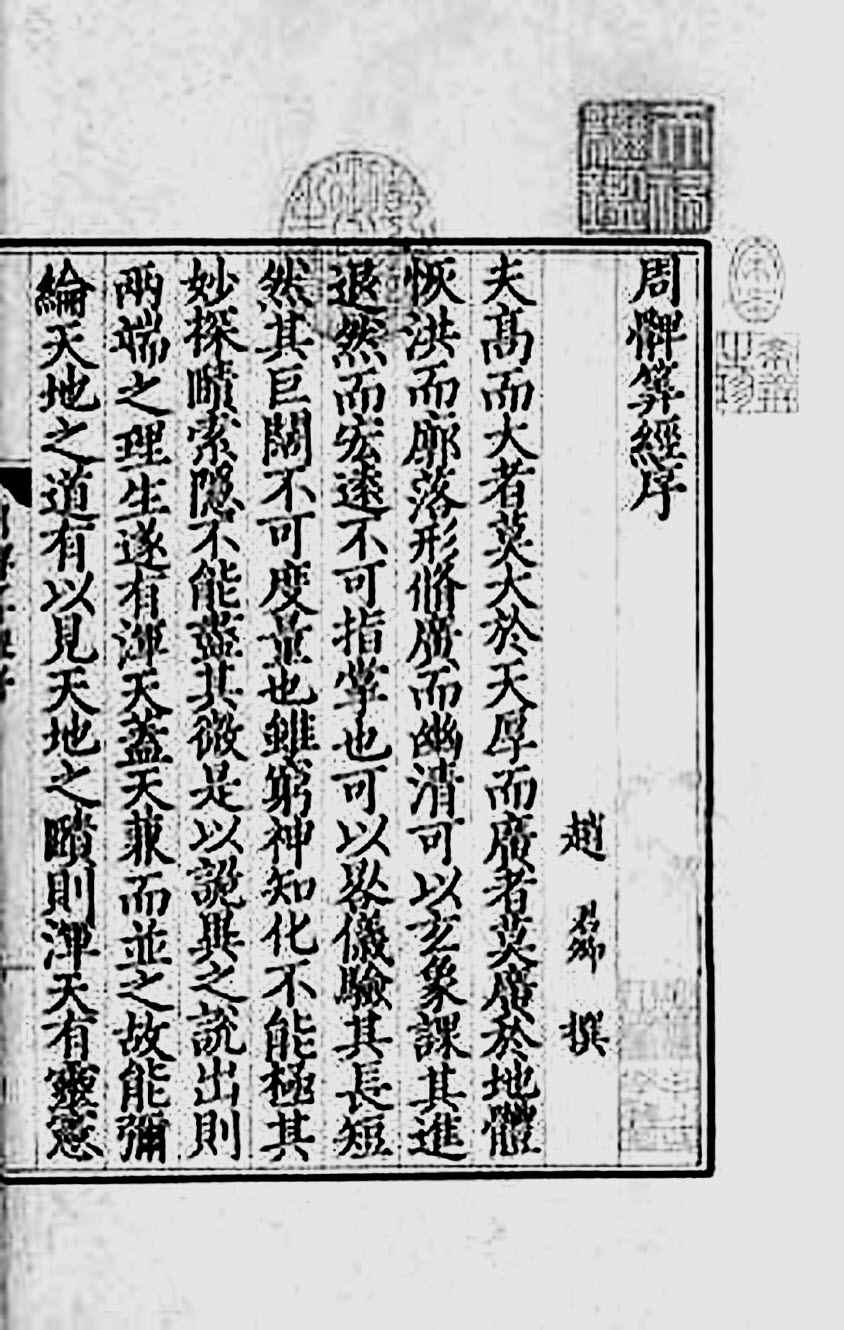 周髀筭經序
趙君卿撰
夫髙而大者莫大於天厚而廣者莫廣於地體
恢洪而廓落形脩廣而幽清可以玄象課其進
退然而宏逺不可指掌也可以晷儀驗其長短
然其巨闊不可度量也雖窮神知化不能極其
妙探賾索隱不能盡其微是以詭異之說出則
兩端之理生遂有渾天蓋天兼而並之故能彌
綸天地之道有以見天地之賾則渾天有靈憲